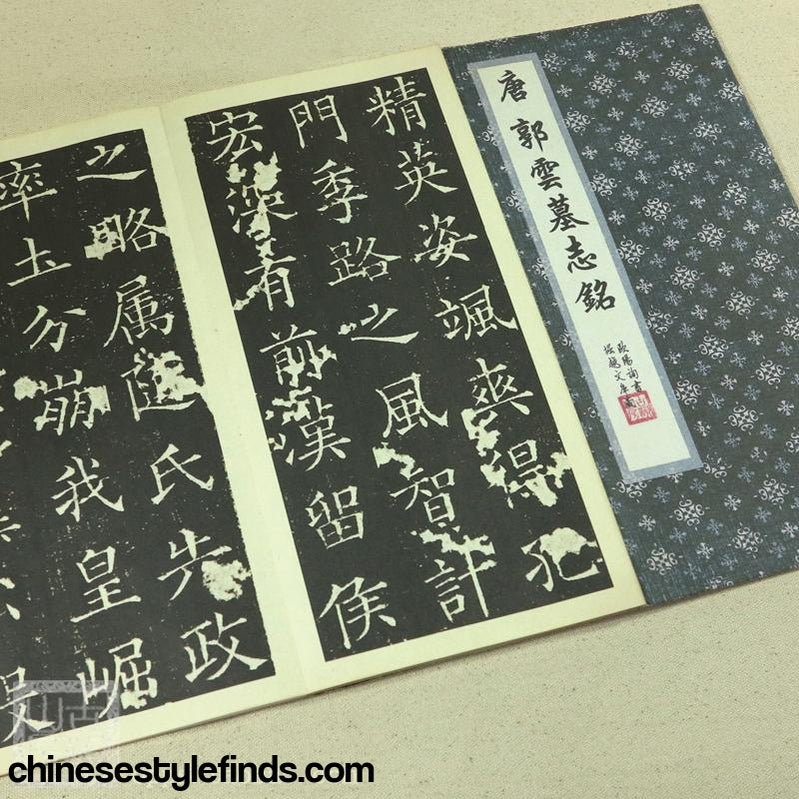 唐 郭雲墓志銘
歐陽詢書
堀越文庫
精英姿颯爽得孔
門季路之風智計
宏深有前漢留侯
之略属氏失政
率土分崩我皇崛
chinesestylefinds.com